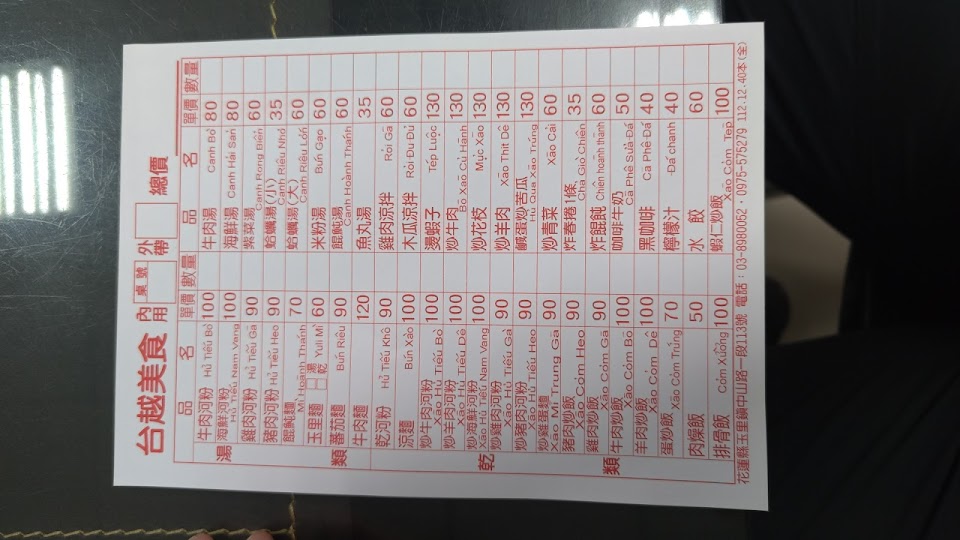 台越美食 內用 桌號 外帶 總價
品名 單價 數量 品名 單價 數量
湯類
牛肉河粉 Hủ Tiếu Bỏ 100
海鮮河粉 Hủ Tiếu Nam Vang 100
雞肉河粉 Hủ Tiếu Gà 90
豬肉河粉 Hủ Tiếu Heo 90
餛飩麵 Mì Hoành Thánh 70
玉里麵 湯 乾 Yuli Mì 60
蕃茄麵 Bún Riêu 90
牛肉麵 120
乾類
乾河粉 Hủ Tiếu Khô 90
涼麵 Bún Xào 100
炒牛肉河粉 Xào Hủ Tiếu Bò 100
炒羊肉河粉 Xào Hủ Tiếu Dê 100
炒海鮮河粉 Xào Hủ Tiếu Nam Vang 100
炒雞肉河粉 Xào Hủ Tiếu Gà 90
炒豬肉河粉 Xào Hủ Tiếu Heo 90
炒雞蛋麵 Xào Mì Trung Gà 90
豬肉炒飯 Xào Cóm Heo 90
雞肉炒飯 Xào Cóm Gà 90
牛肉炒飯 Xào Cóm Bò 100
羊肉炒飯 Xào Cóm Dê 100
蛋炒飯 Xào Cóm Trúng 70
肉燥飯 50
排骨飯 Cóm Xuòng 100
牛肉湯 Canh Bỏ 80
海鮮湯 Canh Hải Sản 80
紫菜湯 Canh Rong Biển 60
蛤蠣湯(小) Canh Riêu Nhỏ 35
蛤蠣湯(大) Canh Riêu Lớn 60
米粉湯 Bún Gạo 60
餛飩湯 Canh Hoành Thánh 60
魚丸湯 35
雞肉涼拌 Rỏi Gà 60
木瓜涼拌 Rỏi Đu Đủ 60
燙蝦子 Tếp Luộc 130
炒牛肉 Bò Xào Củ Hành 130
炒花枝 Mực Xào 130
炒羊肉 Xào Thit Dê 130
鹹蛋炒苦瓜 Hủ Qua Xào Trúng 130
炒青菜 Xào Cải 60
炸春捲1條 Chả Giò Chiên 35
炸餛飩 Chiên hoành thánh 60
咖啡牛奶 Cà Phê Suả Đá 50
黑咖啡 Ca Phê Đá 40
檸檬汁 Đá chanh 40
水餃 60
蝦仁炒飯 Xào Cóm Tep 100
花蓮縣玉里鎮中山路一段113號 電話:03-8980062‧0975-575279 112.12.40本(全)